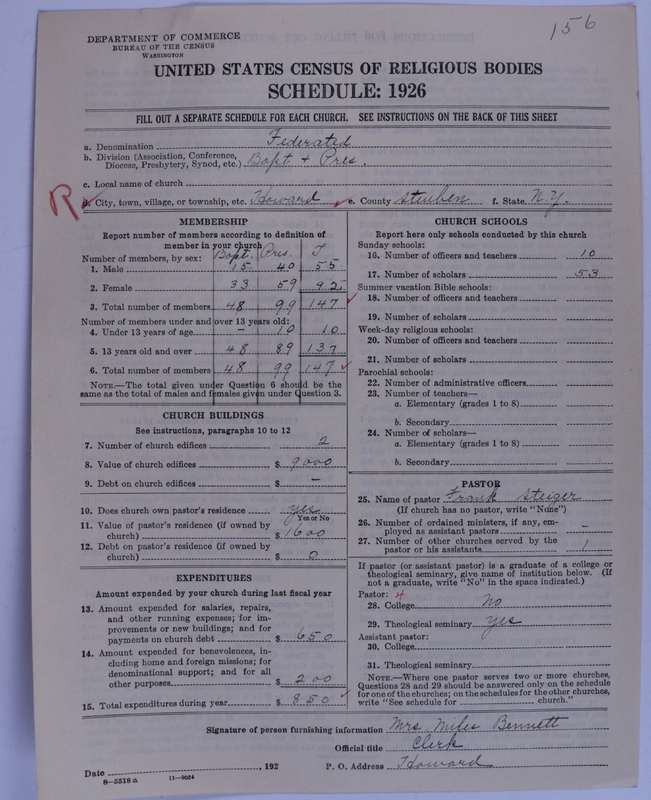 156
DEPARTMENT OF COMMERCE
BUREAU OF THE CENSUS
WASHINGTON
UNITED STATES CENSUS OF RELIGIOUS BODIES
SCHEDULE: 1926
FILL OUT A SEPARATE SCHEDULE FOR EACH CHURCH. SEE INSTRUCTIONS ON THE BACK OF THIS SHEET
a. Denomination Federated
b. Division (Association, Conference, Diocese, Presbytery, Synod, etc.) Bapt + Pres.
c. Local name of church
R d. City, town, village, or township, etc. Howard e. County Steuben f. State N.Y.
MEMBERSHIP
Report number of members according to definition of
member in your church
Bapt. Pres. T
Number of members, by sex:
1. Male 15 40 55
2. Female 33 59 92
3. Total number of members 48 99 147
Number of members under and over 13 years old:
4. Under 13 years of age - 10 10
5. 13 years old and over 48 89 137
6. Total number of members 48 99 147
NOTE.—The total given under Question 6 should be the
same as the total of males and females given under Question 3.
CHURCH BUILDINGS
See instructions, paragraphs 10 to 12
7. Number of church edifices 2
8. Value of church edifices $ 9000
9. Debt on church edifices $ -
10. Does church own pastor's residence yes
Yes or No
11. Value of pastor's residence (if owned by
church) $ 1600
12. Debt on pastor's residence (if owned by
church) $ 0
EXPENDITURES
Amount expended by your church during last fiscal year
13. Amount expended for salaries, repairs,
and other running expenses; for im-
provements or new buildings; and for
payments on church debt $ 650
14. Amount expended for benevolences, in-
cluding home and foreign missions; for
denominational support; and for all
other purposes $ 200
15. Total expenditures during year $ 850
CHURCH SCHOOLS
Report here only schools conducted by this church
Sunday schools:
16. Number of officers and teachers 10
17. Number of scholars 53
Summer vacation Bible schools:
18. Number of officers and teachers
19. Number of scholars
Week-day religious schools:
20. Number of officers and teachers
21. Number of scholars
Parochial schools:
22. Number of administrative officers
23. Number of teachers—
a. Elementary (grades 1 to 8)
b. Secondary
24. Number of scholars—
a. Elementary (grades 1 to 8)
b. Secondary
PASTOR
25. Name of pastor Frank Steiger
(If church has no pastor, write "None")
26. Number of ordained ministers, if any, em-
ployed as assistant pastors -
27. Number of other churches served by the
pastor or his assistants 1
If pastor (or assistant pastor) is a graduate of a college or
theological seminary, give name of institution below. (If
not a graduate, write "No" in the space indicated.)
Pastor: 4
28. College No
29. Theological seminary yes
Assistant pastor:
30. College
31. Theological seminary
NOTE.—Where one pastor serves two or more churches,
Questions 28 and 29 should be answered only on the schedule
for one of the churches; on the schedules for the other churches,
write "See schedule for church."
Signature of person furnishing information Mrs. Miles Bennett
Official title Clerk
Date , 192 P. O. Address Howard
8-5518a 11-9054